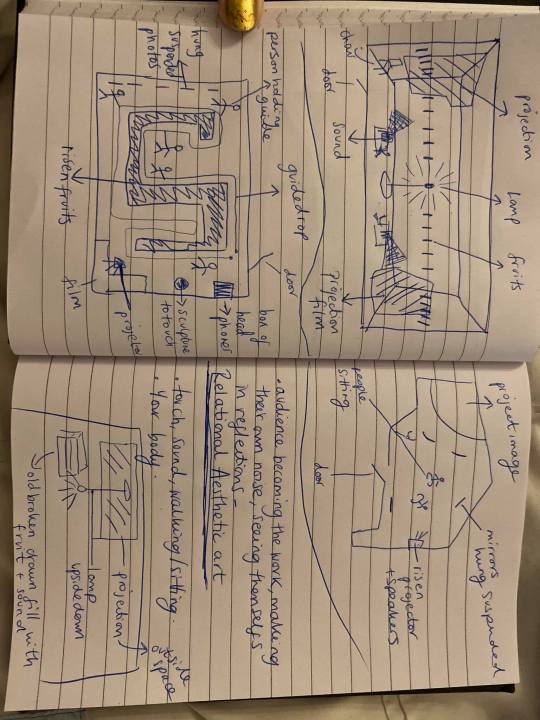 projection
lamp
fruits
chair
door
sound
projection
film
hung
suspended
photos
person holding
guide
guided rop
door
risen fruits
film
projector
sculpture
to touch
box of
head
phones
project image
mirrors
hung suspended
people
sitting
door
risen
projector
+ speakers
• audience becoming the work, making
their own noise, seeing themselves
in reflections -
Relational Aesthetic art
• touch, sound, walking/sitting.
• Your body.
projection
lamp
upside down
old broken drawn fill with
fruit + sound
side
of space